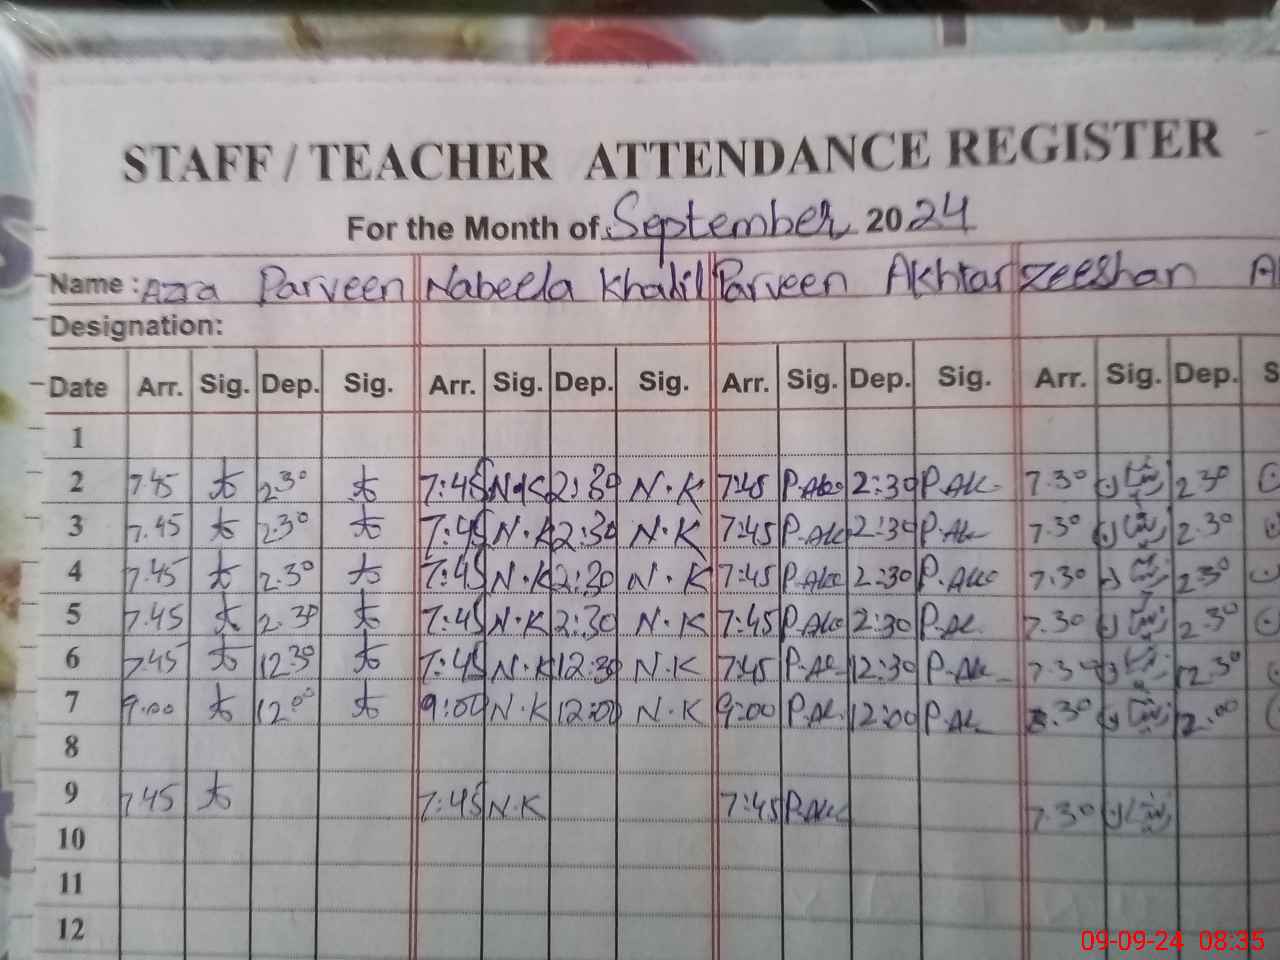 STAFF / TEACHER ATTENDANCE REGISTER
For the Month of September 2024
Name : Azra Parveen Nabeela Khalil Parveen Akhtar Zeeshan
Designation:
Date Arr. Sig. Dep. Sig. Arr. Sig. Dep. Sig. Arr. Sig. Dep. Sig. Arr. Sig. Dep.
1
2 7.45 2.30 7:45 N.K 2:30 N.K 7:45 2:30 7.30 2.30
3 7.45 2.30 7:45 N.K 2:30 N.K 7:45 2:30 7.30 2.30
4 7.45 2.30 7:45 N.K 2:30 N.K 7:45 2:30 7.30 2.30
5 7.45 2.30 7:45 N.K 2:30 N.K 7:45 2:30 7.30 2.30
6 7.45 12.30 7:45 N.K 12:30 N.K 7:45 12:30 7.30 12.30
7 9.00 12.00 9:00 N.K 12:00 N.K 9:00 12:00 12.00
8
9 7.45 7:45 N.K 7:45 7.30
10
11
12
09-09-24 08:35